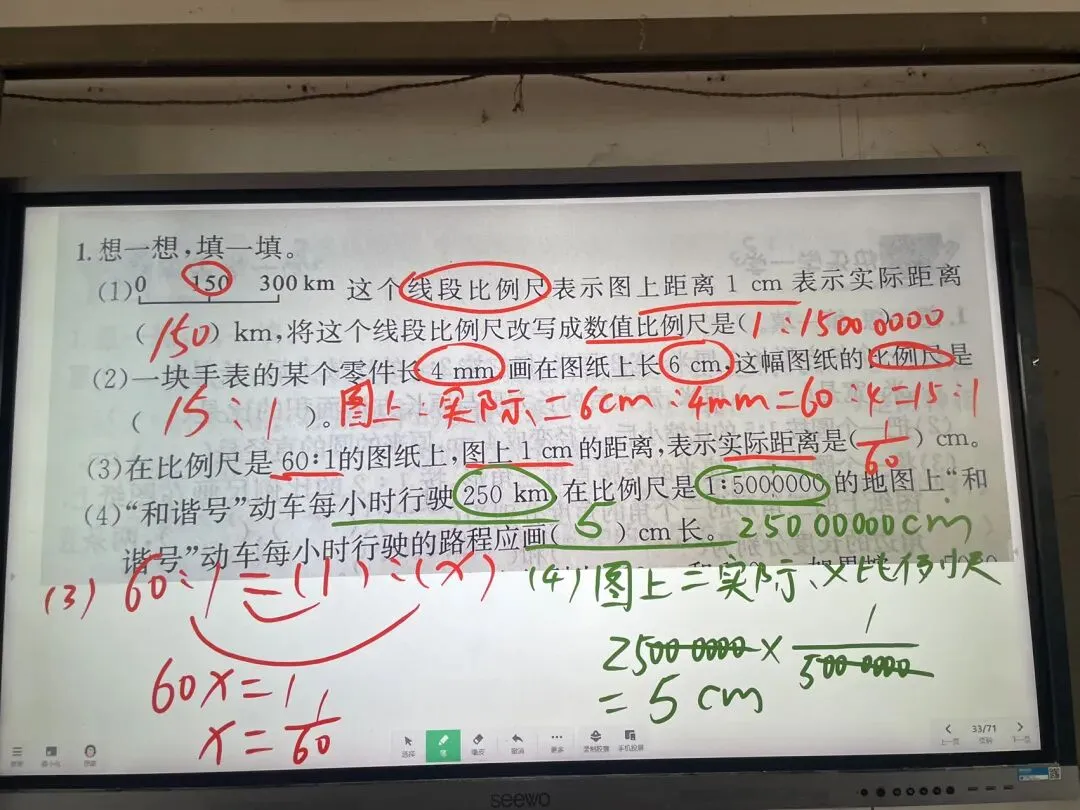 1.想一想,填一填。
(1) 0 150 300 km 这个线段比例尺表示图上距离 1 cm 表示实际距离
(150) km,将这个线段比例尺改写成数值比例尺是(1:15000000)
(2)一块手表的某个零件长 4 mm,画在图纸上长 6 cm,这幅图纸的比例尺是
(15:1)。图上:实际=6cm:4mm=60:4=15:1
(3)在比例尺是 60:1的图纸上,图上 1 cm 的距离,表示实际距离是(1/60) cm。
(4)“和谐号”动车每小时行驶 250 km,在比例尺是 1:5000000 的地图上“和
谐号”动车每小时行驶的路程应画(5) cm 长。 25000000cm
(3) 60:1=(1):(x)
60x=1
x=1/60
(4)图上=实际×比例尺
25000000×1/5000000
=5cm
选择
笔
橡皮
撤销
更多
手机投屏
33/71
上一页
下一页
seewo